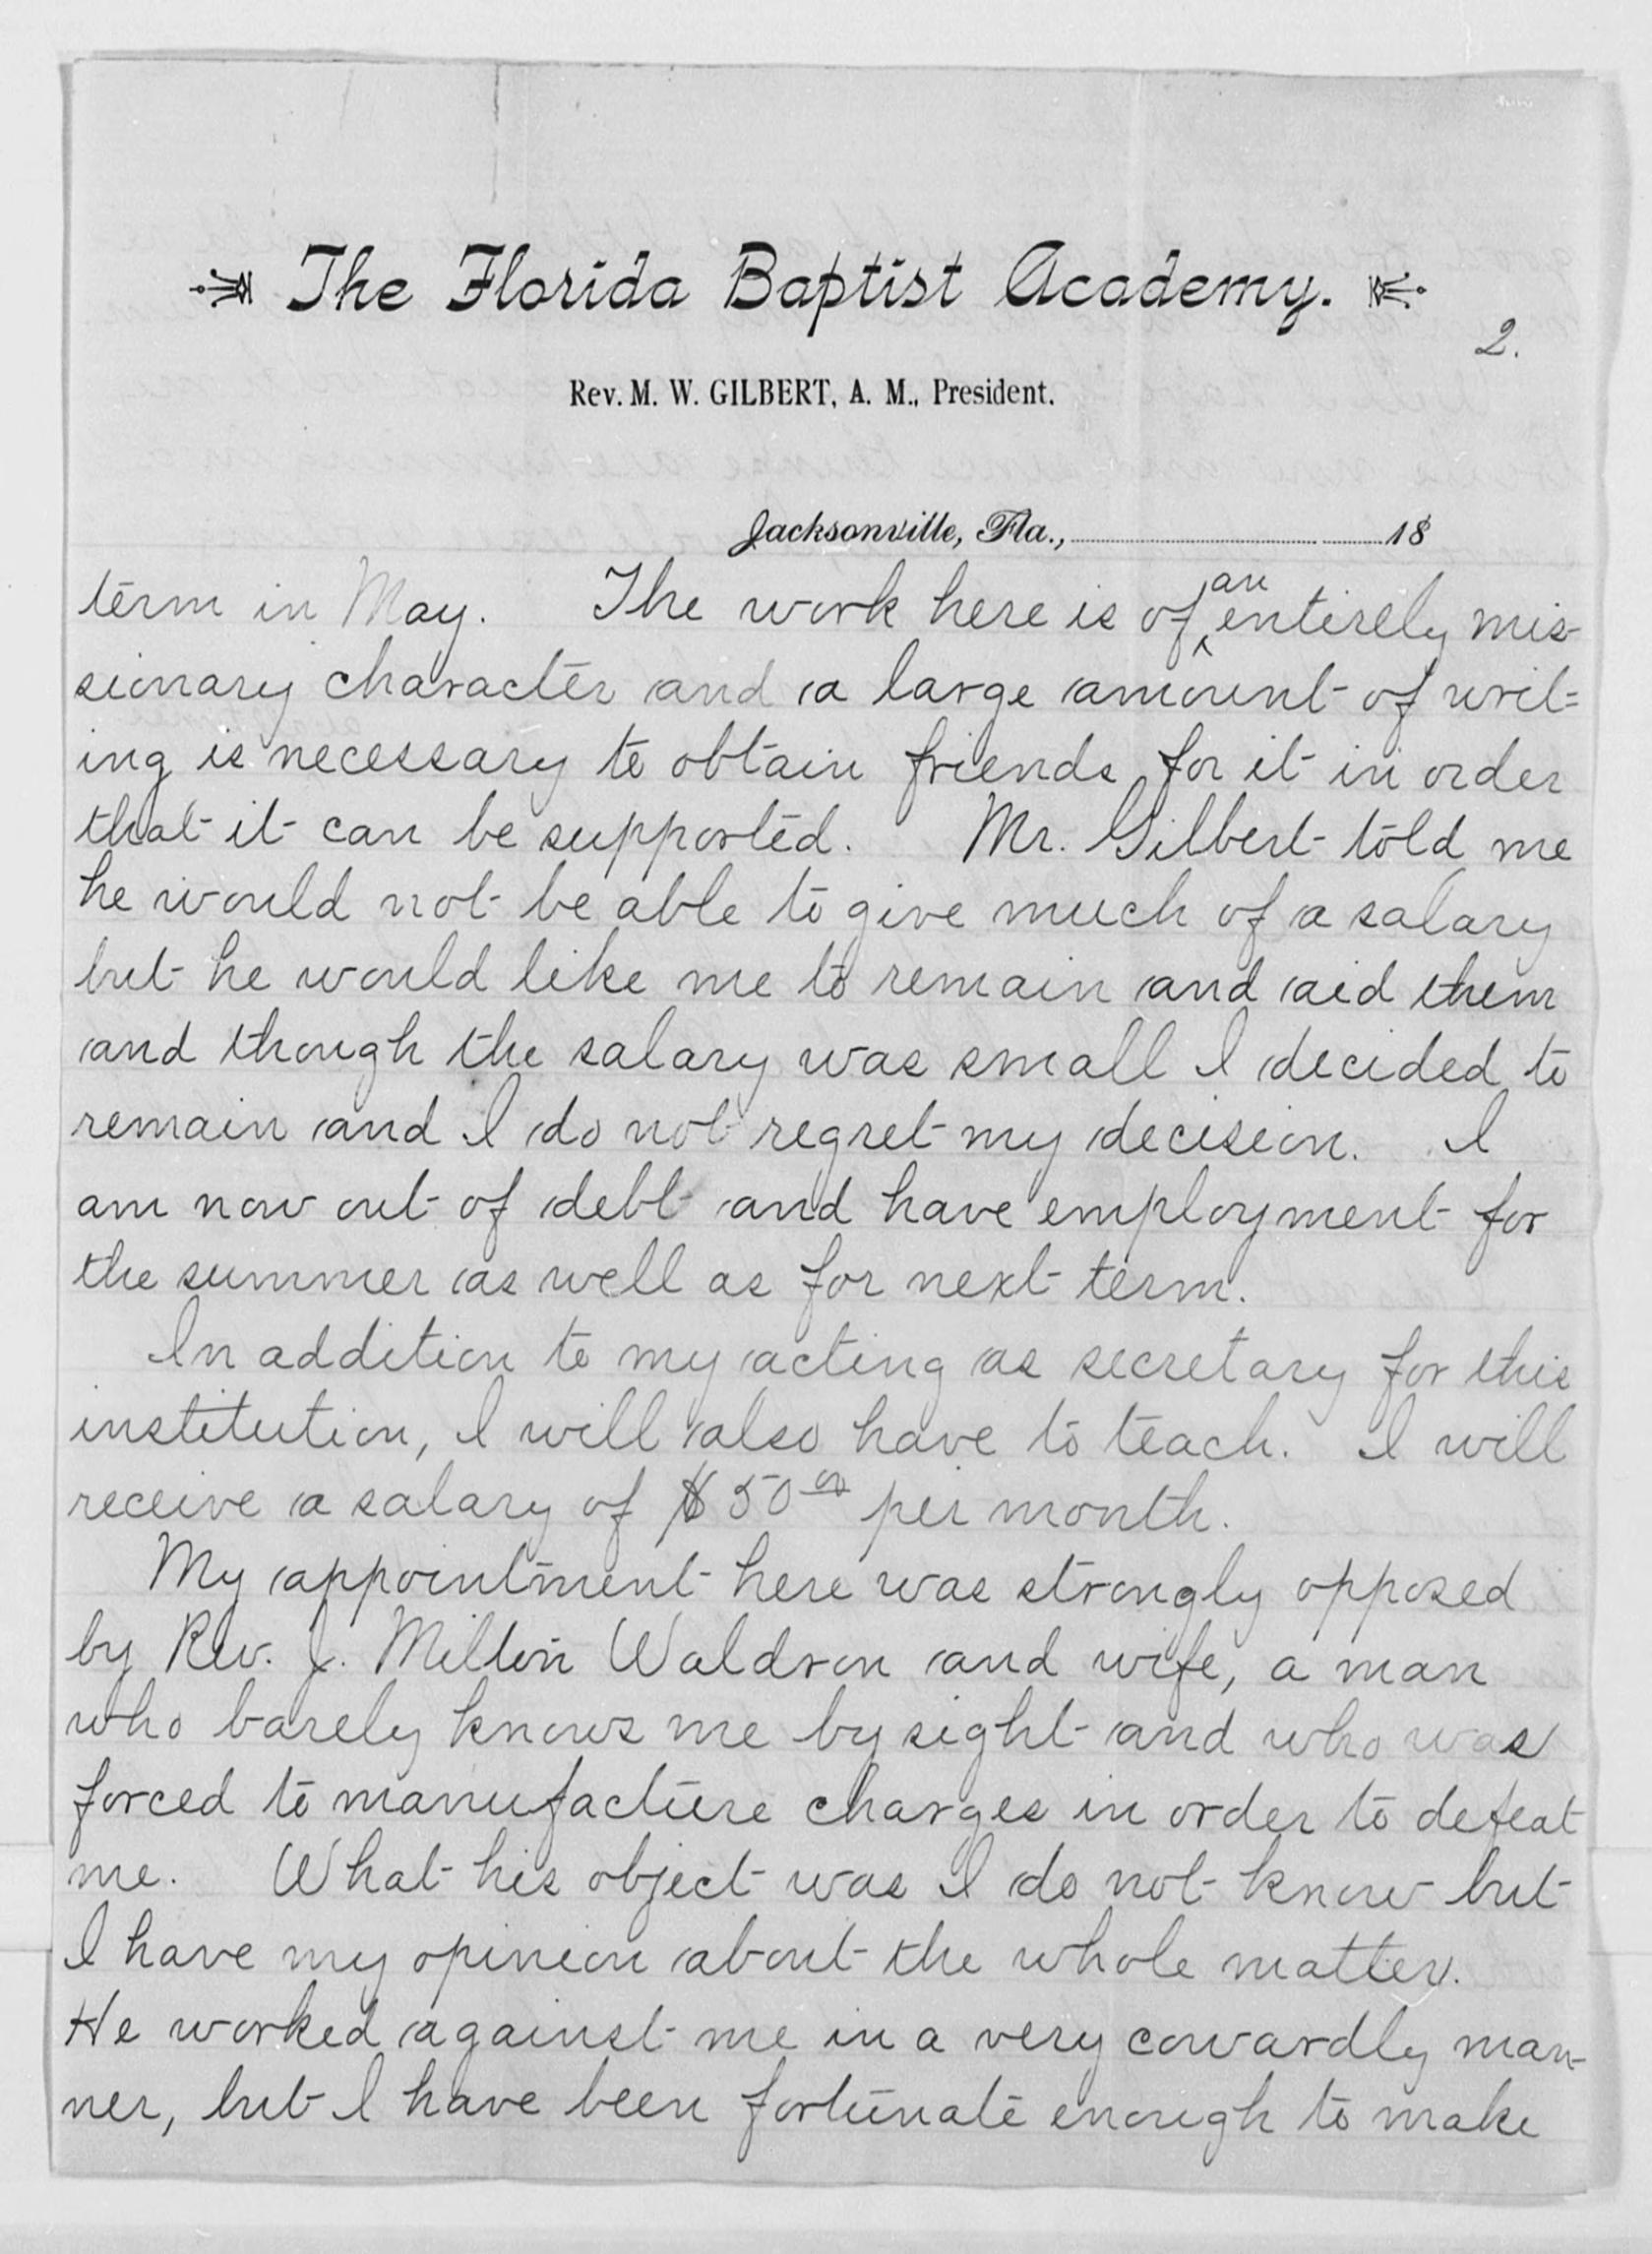 The Florida Baptist Academy.
2.
Rev. M. W. GILBERT, A. M., President.
Jacksonville, Fla., 18
term in May. The work here is of an entirely mis-
sionary character and a large amount of writ=
ing is necessary to obtain friends for it in order
that it can be supported. Mr. Gilbert told me
he would not be able to give much of a salary
but he would like me to remain and aid them
and though the salary was small I decided to
remain and I do not regret my decision. I
am now out of debt and have employment for
the summer as well as for next term.
In addition to my acting as secretary for this
institution, I will also have to teach. I will
receive a salary of $50 00 per month.
My appointment here was strongly opposed
by Rev. J. Milton Waldron and wife, a man
who barely knows me by sight and who was
forced to manufacture charges in order to defeat
me. What his object was I do not know but
I have my opinion about the whole matter.
He worked against me in a very cowardly man-
ner, but I have been fortunate enough to make